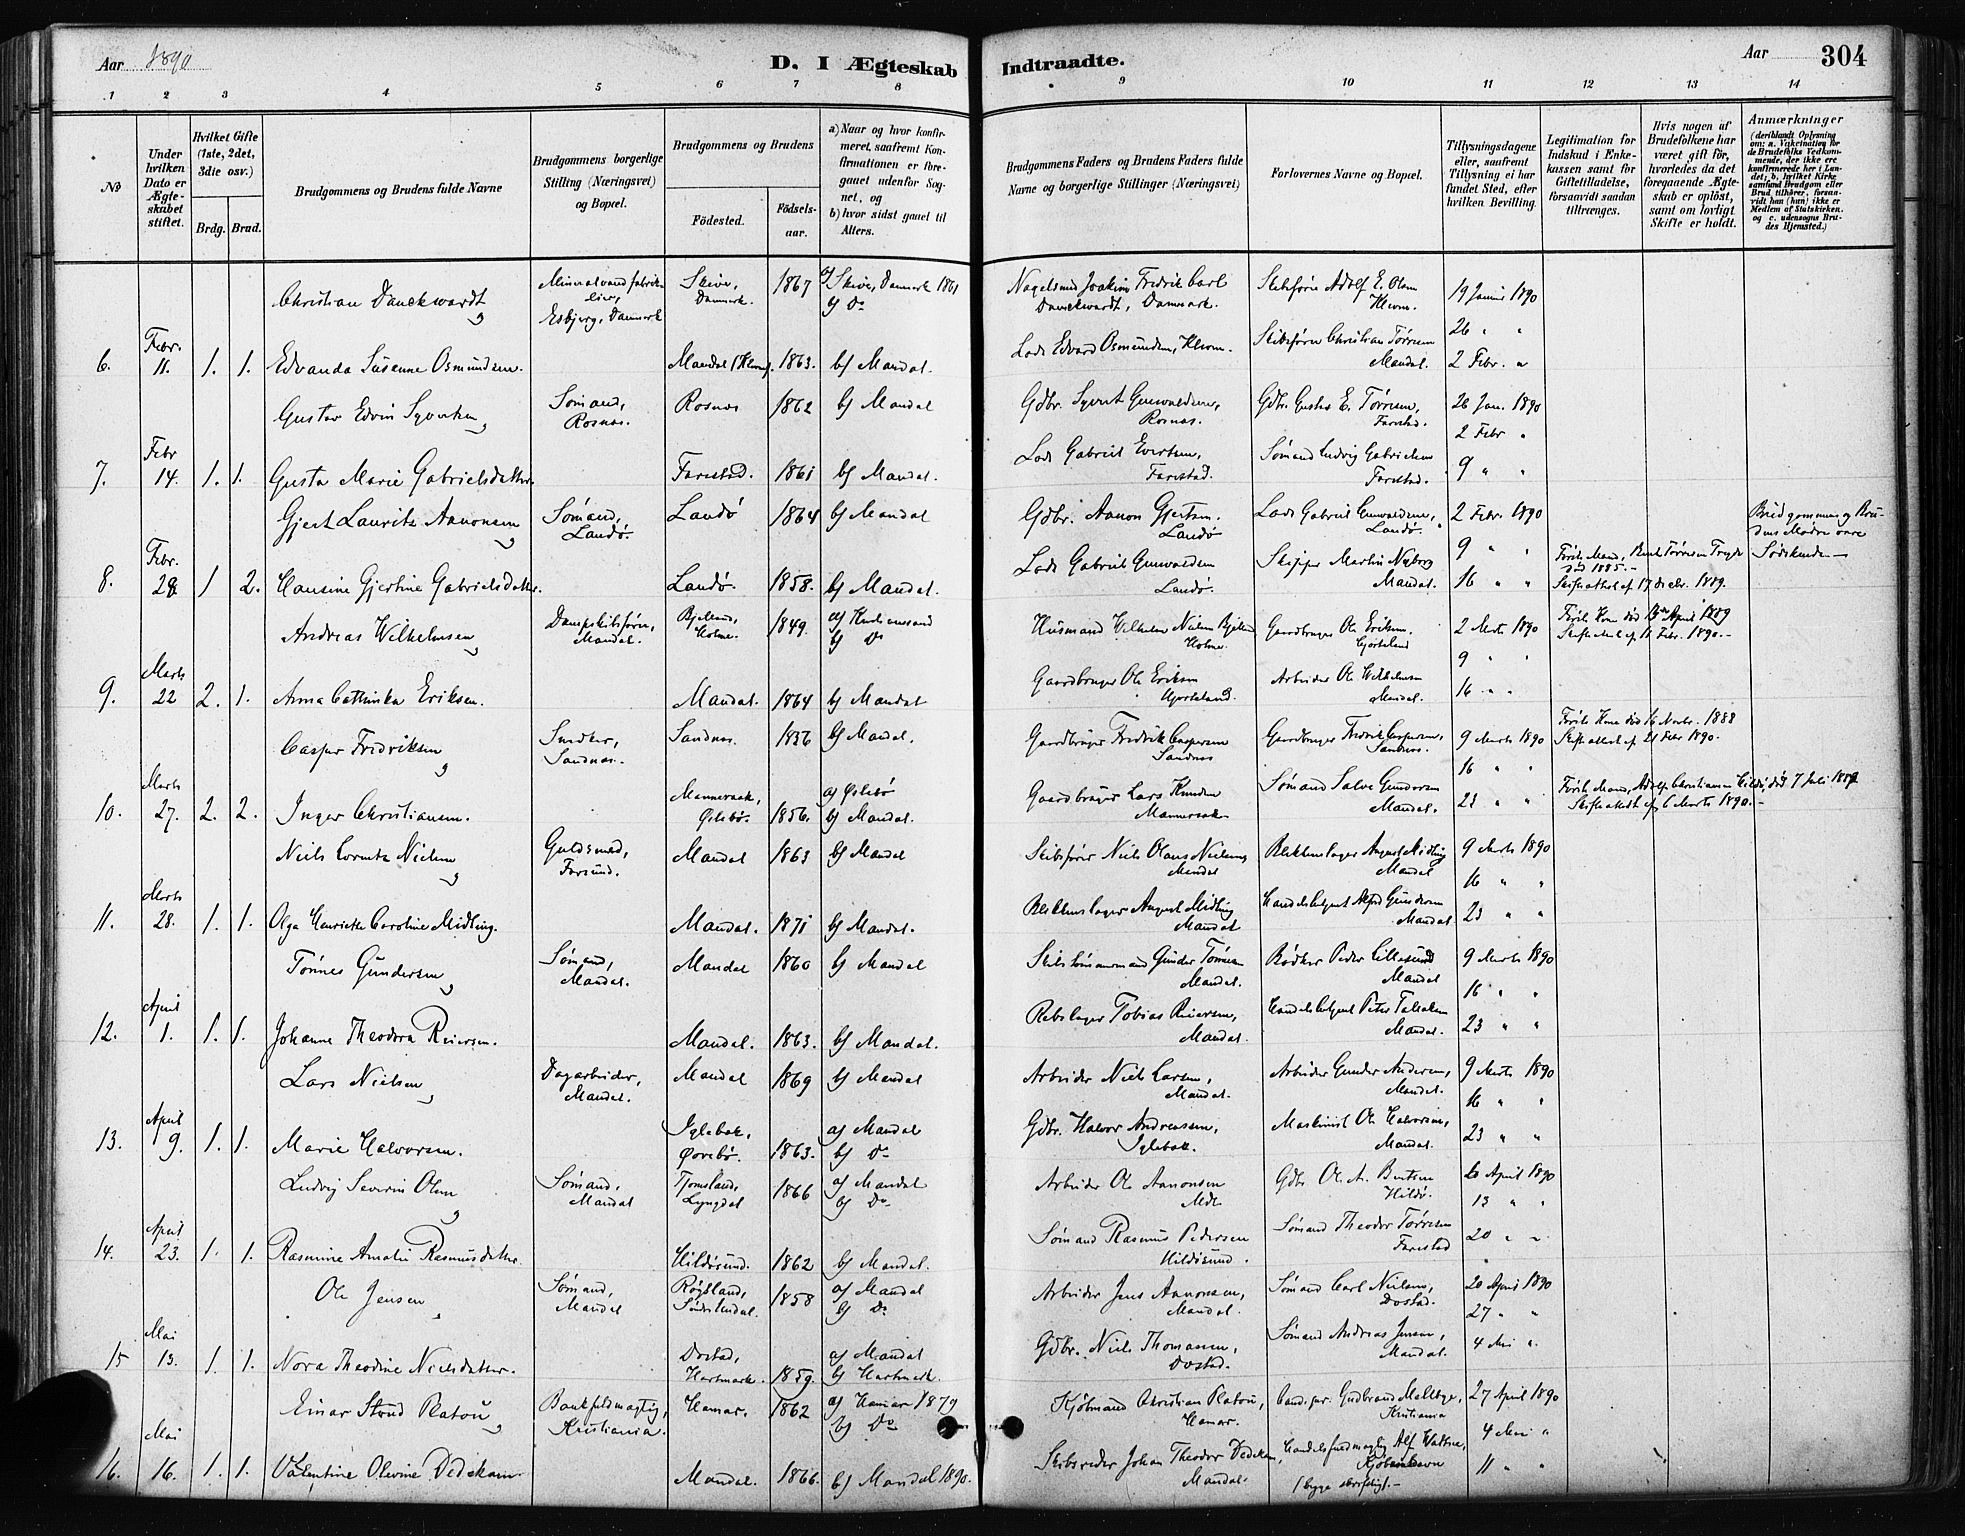 Aar 1890 D. I Ægteskab Indtraadte. Aar 304
1 2 3 4 5 6 7 8 9 10 11 12 13 14
No
Under hvilken Dato er Ægteskabet stiftet.
Hvilket Gifte (1ste, 2det, 3die osv.)
Brdg. Brud.
Brudgommens og Brudens fulde Navne
Brudgommens borgerlige Stilling (Næringsvei) og Bopæl.
Brudgommens og Brudens
Fødested. Fødselsaar.
a) Naar og hvor konfirmeret, saafremt Konfirmationen er foregaaet udenfor Sognet, og
b) hvor sidst gaaet til Alters.
Brudgommens Faders og Brudens Faders fulde Navne og borgerlige Stillinger (Næringsvei)
Forlovernes Navne og Bopæl.
Tillysningsdagene eller, saafremt Tillysning ei har fundet Sted, efter hvilken Bevilling.
Legitimation for Indskud i Enkekassen samt for Giftetilladelse, forsaavidt saadan tiltrænges.
Hvis nogen af Brudefolkene har været gift før, hvorledes da det foregaaende Ægteskab er opløst, samt om lovligt Skifte er holdt.
Anmærkninger
(deriblandt Oplysning om: a. Vakcination for de Brudefolks Vedkommende, der ikke ere konfirmerede her i Landet; b. hvilket Kirkesamfund Brudgom eller Brud tilhører, forsaavidt han (hun) ikke er Medlem af Statskirken, og c. udensogns Brudes Hjemsted.)
Christian Danckwardt Mineralvandfabrikeier, Esbjerg, Danmark Skive, Danmark. 1867 a) Skive, Danmark 1881 b) Do Joakim Fredrik Carl Danckwardt, Danmark. Skibsfører Adolf E. Olsen Kleven. 19 Januar 1890
26 " "
6. Febr. 11. 1. 1. Edvarda Susanne Osmundsen. Mandal (Kleven). 1863. b) Mandal. Lods Edvard Osmundsen, Kleven. Skibsfører Christian Tørresen Mandal. 2 Febr. "
Gustav Edvin Syvertsen Sømand, Rosnæs. Rosnæs 1862 b) Mandal Gdbr. Syvert Gunvaldsen, Rosnæs. Gdbr. Gustav E. Tørresen, Farestad. 26 Jan. 1890
2 Febr "
7. Febr 14. 1. 1. Gusta Marie Gabrielsdatter. Farestad. 1861 b) Mandal. Lods Gabriel Evertsen, Farestad. Sømand Ludvig Gabrielsen Farestad. 9 " "
Gjert Lauritz Aanonsen Sømand, Landø. Landø 1864 b) Mandal Gdbr. Aanon Gjertsen. Landø Lods Gabriel Gunvaldsen, Landø. 2 Febr. 1890 Brudgommens og Brudens Mødre vare Sødskende.
9 " "
8. Febr. 28. 1 2. Hansine Gjertine Gabrielsdatter. Landø. 1858. b) Mandal. Lods Gabriel Gunvaldsen Landø. Skipper Martin Nyborg Mandal. 16 " " Første Mand, Bent Tørresen død 1885. Skifteattest af 17 Decbr. 1889.
Andreas Wilhelmsen Dampskibsfører, Mandal. Bjelland, Holme. 1849. a) Kristianssand b) Do Husmand Wilhelm Nielsen Bjelland Holme. Gaardbruger Ole Eriksen. Gjorteland 2 Marts 1890 Første Kone død 13de April 1889 Skifteattest af 11 Febr. 1890.
9 " "
9. Marts 22 2. 1. Anna Cathinka Eriksen. Mandal. 1864 b) Mandal Gaardbruger Ole Eriksen Arbeider Ole Wilhelmsen Mandal. 16 " "
Casper Fredriksen Snedker, Sandnæs. Sandnæs. 1856 b) Mandal. Gaardbruger Fredrik Caspersen Sandnæs Gaardbruger Fredrik Caspersen, Sandnæs. 9 Marts 1890 Første Kone død 16 Novbr. 1888 Skifteattest af 21 Febr 1890.
16 " "
10. Marts 27. 2. 2. Inger Christiansen. Mannersak, Øslebø. 1856. a) Øslebø b) Mandal. Gaardbruger Lars Knudsen Mannersak Sømand Salve Gundersen Mandal. 23 " " Første Mand, Adolf Christiansen Hildø død 7 Juli Skifteattest af 6 Marts 1890.
Niels Lorentz Nielsen Guldsmed, Farsund. Mandal 1863 b) Mandal Skibsfører Niels Olaus Nielsen Mandal Blikkenslager August Midling Mandal 9 Marts 1890
16 " "
11. Marts 28. 1. 1. Olga Henriette Caroline Midling. Mandal. 1871 b) Mandal. Blikkenslager August Midling Mandal Handelsbetjent Alfred Gundersen Mandal 23 " "
Tønnes Gundersen Sømand, Mandal. Mandal 1860 b) Mandal Skibstømmermand Gunder Tønnesen Mandal. Bødker Peder Lillesund Mandal 9 Marts 1890
16 " "
12. April 1. 1. 1. Johanne Theodora Reiersen. Mandal. 1863. b) Mandal. Rebslager Tobias Reiersen, Mandal. Handelsbetjent Peter Mandal. 23 " "
Lars Nielsen Dagarbeider, Mandal. Mandal 1869 b) Mandal Arbeider Niels Larsen, Mandal. Arbeider Gunder Andersen, Mandal. 9 Marts 1890
16 " "
13. April 9. 1. 1. Marie Halvorsen. Iglebæk, Øvrebø. 1863. a) Mandal b) Do Gdbr. Halvor Andreassen, Iglebæk. Maskinist Ole Halvorsen, Mandal. 23 " "
Ludvig Severin Olsen Sømand, Mandal Tjomsland, Lyngdal 1866 a) Mandal b) Do Arbeider Ole Aanonsen Mdl. Gdbr Ole A. Bentsen Hildø. 6 April 1890
13 " "
14. April 23. 1. 1. Rasmine Amalie Rasmusdatter Hildøsund. 1862 b) Mandal. Sømand Rasmus Pedersen Hildøsund. Sømand Theodor Tørresen Farestad 20 " "
Ole Jensen Sømand, Mandal Røysland, Søndre Undal. 1858 a) Mandal b) Do Arbeider Jens Aanonsen, Mandal. Sømand Carl Nielsen, Dostad. 20 April 1890
27 " "
15 Mai 13. 1. 1. Nora Theodine Nielsdatter. Dostad, Hartmark. 1859. a) Mandal b) Hartmark. Gdbr. Niels Thomassen, Dostad. Sømand Andreas Jensen, Mandal. 4 Mai "
Einar Stoud Platou Bankfuldmægtig, Kristiania. Hamar. 1862 a) Hamar 1879 b) Do Kjøbmand Christian Platou, Hamar. Cand. jur. Gudbrand Maltbye, Kristiania 27 April 1890
4 Mai "
16. Mai 16. 1. 1. Valentine Olevine Dedekam Mandal. 1866. b) Mandal 1890. Skibsreder Johan Theodor Dedekam, Mandal. Handelsfuldmægtig Alf Kjøbenhavn (begge skriftligt.- 11 " "